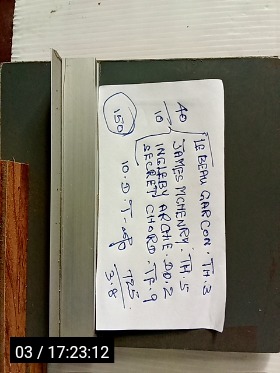 LE BEAU GARCON . TH. 3
40 JAMES MCHENRY . TH. 5
10 INGLEBY ARCHIE . DO. 2
SECRET CHORD . TF. 9
150 10. D. T
725
3.8
03 / 17:23:12